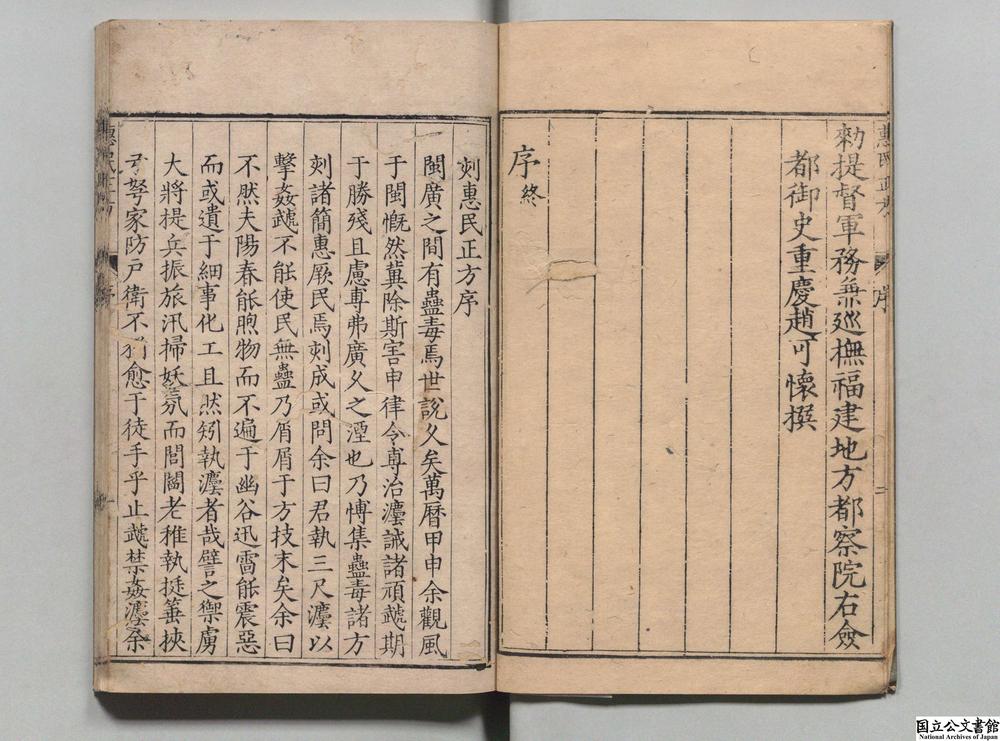 勑提督軍務兼廵撫福建地方都察院右僉
都御史重慶趙可懷撰
序終
惠民正方
序
二
刻惠民正方序
閩廣之間有蠱毒焉世說久矣萬曆甲申余觀風
于閩慨然冀除斯害申律令專治灋誡諸頑虣期
于勝殘且慮專弗廣久之湮也乃博集蠱毒諸方
刻諸簡惠厥民焉刻成或問余曰君執三尺灋以
擊姦虣不能使民無蠱乃屑屑于方技末矣余曰
不然夫陽春能煦物而不遍于幽谷迅雷能震惡
而或遺于細事化工且然矧執灋者哉譬之禦虜
大將提兵振旅汛掃妖氛而閭閻老稚執挺箠挾
弓弩家防戶衛不猶愈于徒手乎止虣禁姦灋余
序
國立公文書館
National Archives of Japan